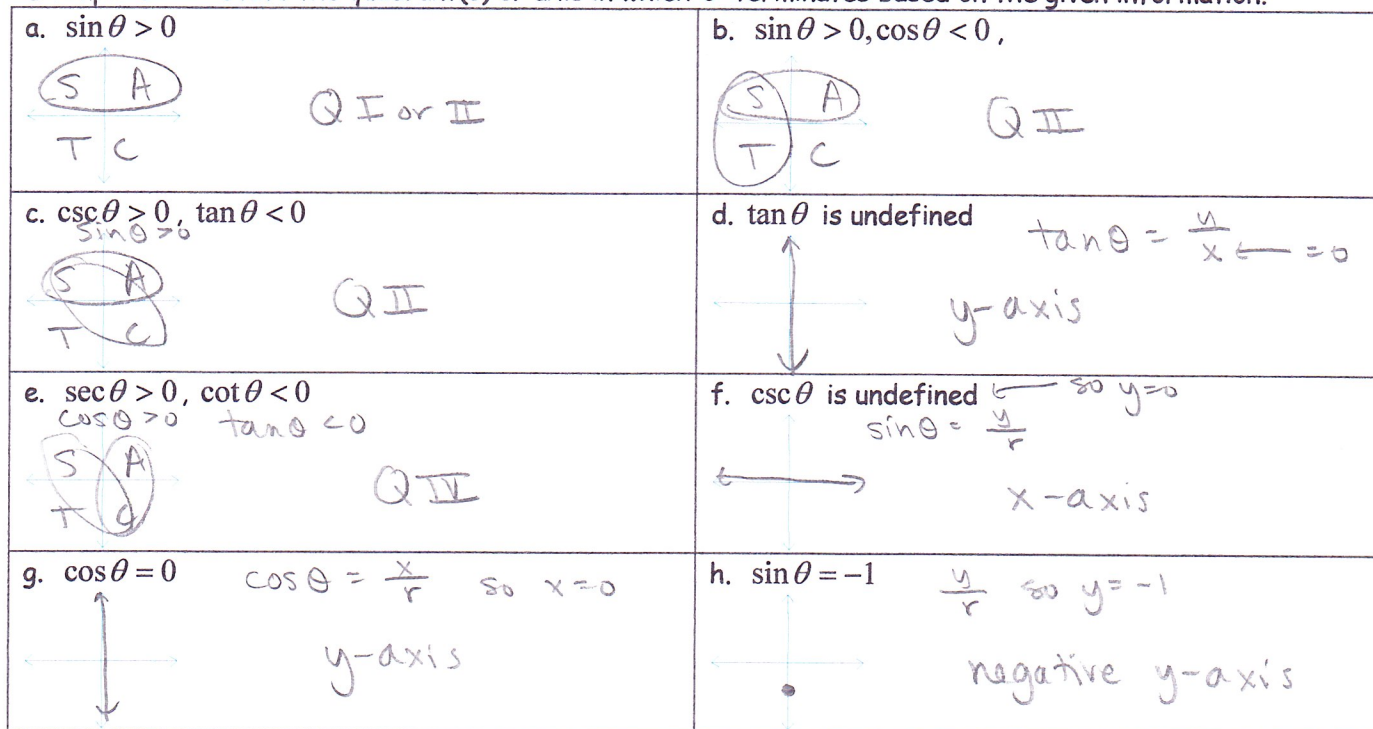 a. sin θ > 0
S A
T C
Q I or II
b. sin θ > 0, cos θ < 0,
S A
T C
Q II
c. csc θ > 0, tan θ < 0
sin θ > 0
S A
T C
Q II
d. tan θ is undefined
tan θ = y/x ← = 0
y-axis
e. sec θ > 0, cot θ < 0
cos θ > 0 tan θ < 0
S A
T C
Q IV
f. csc θ is undefined ← so y=0
sin θ = y/r
x-axis
g. cos θ = 0
cos θ = x/r so x=0
y-axis
h. sin θ = −1
y/r so y=-1
negative y-axis